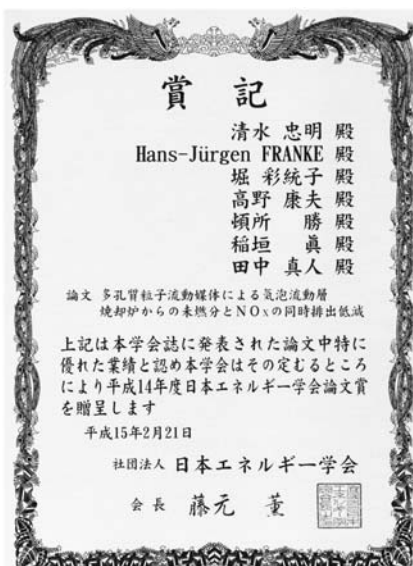 賞記
清水 忠明 殿
Hans-Jürgen FRANKE 殿
堀 彩統子 殿
高野 康夫 殿
頓所 勝 殿
稲垣 眞 殿
田中 真人 殿
論文 多孔質粒子流動媒体による気泡流動層
焼却炉からの未燃分とNOxの同時排出低減
上記は本学会誌に発表された論文中特に
優れた業績と認め本学会はその定むるところ
により平成14年度日本エネルギー学会論文賞
を贈呈します
平成15年2月21日
社団法人 日本エネルギー学会
会長 藤元 薫